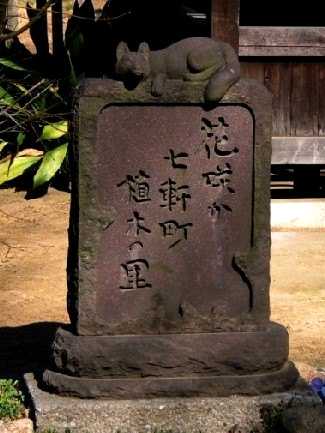 花咲か
七軒町
植木の里